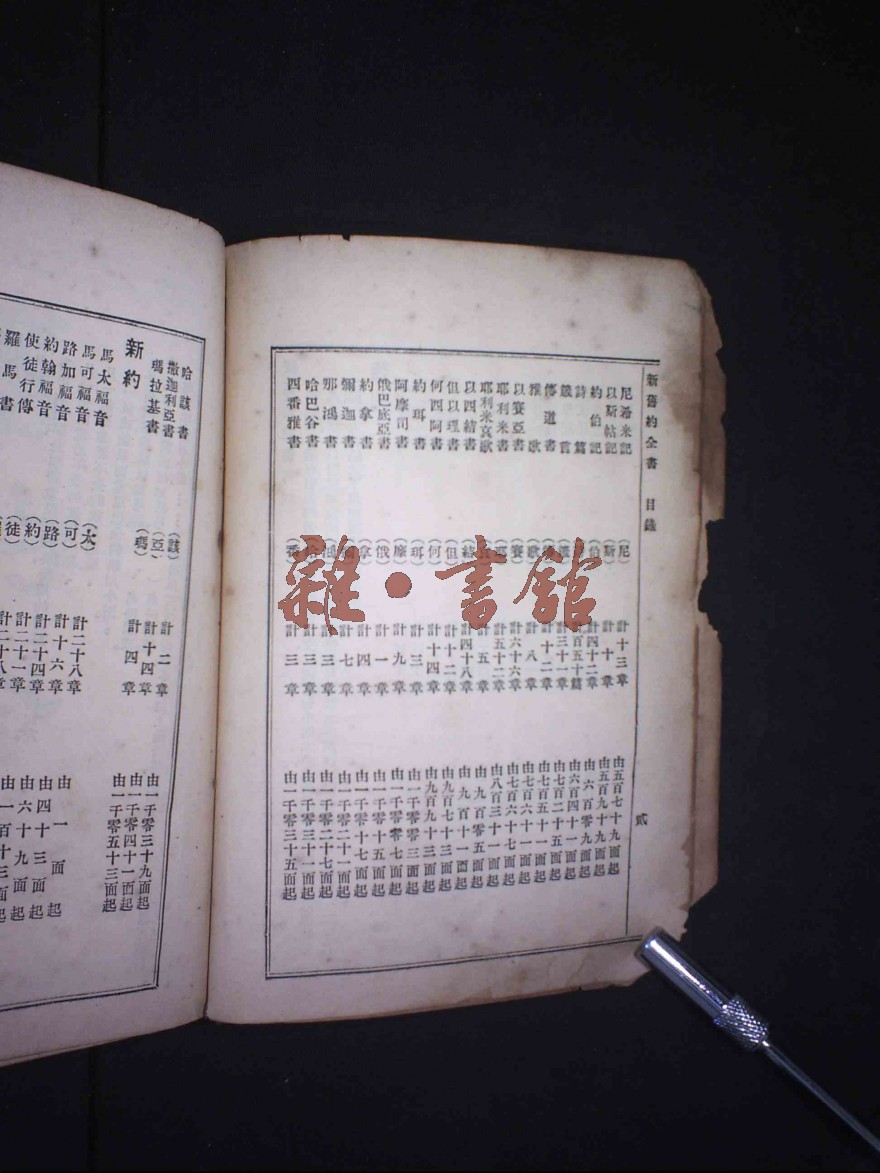 新舊約全書 目錄 貳
尼希米記 (尼) 計十三章 由五百七十九面起
以斯帖記 (斯) 計十章 由五百九十七面起
約伯記 (伯) 計四十二章 由六百零九面起
詩篇 百五十篇 由六百四十一面起
箴言 (箴) 計三十一章 由七百二十五面起
傳道書 計十二章 由七百五十一面起
雅歌 (歌) 計八章 由七百六十一面起
以賽亞書 (賽) 計六十六章 由七百六十七面起
耶利米書 (耶) 計五十二章 由八百三十一面起
耶利米哀歌 (哀) 計五章 由九百零五面起
以西結書 (結) 計四十八章 由九百十一面起
但以理書 (但) 計十二章 由九百七十三面起
何西阿書 (何) 計十四章 由九百九十三面起
約珥書 (珥) 計三章 由一千零零三面起
阿摩司書 (摩) 計九章 由一千零零七面起
俄巴底亞書 (俄) 計一章 由一千零十五面起
約拿書 (拿) 計四章 由一千零十七面起
彌迦書 (彌) 計七章 由一千零二十一面起
那鴻書 (鴻) 計三章 由一千零二十七面起
哈巴谷書 (哈) 計三章 由一千零三十一面起
西番雅書 (番) 計三章 由一千零三十五面起
哈該書 (該) 計二章 由一千零三十九面起
撒迦利亞書 (亞) 計十四章 由一千零四十一面起
瑪拉基書 (瑪) 計四章 由一千零五十三面起
新約
馬太福音 (太) 計二十八章 由一面起
馬可福音 (可) 計十六章 由四十三面起
路加福音 (路) 計二十四章 由六十九面起
約翰福音 (約) 計二十一章 由一百十三面起
使徒行傳 (徒) 計二十八章
羅馬書
雜·書館